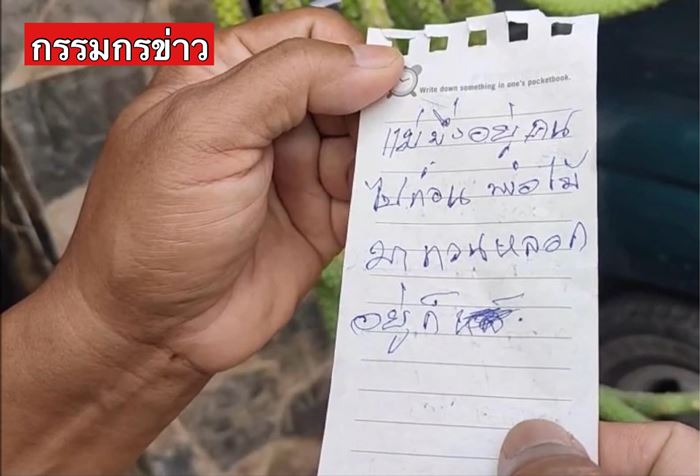 กรรมกรข่าว
Write down something in one's pocketbook.
แม่มึงอยู่คน
ไปก่อน พ่อไม่
มากวนหลอก
อยู่ก็